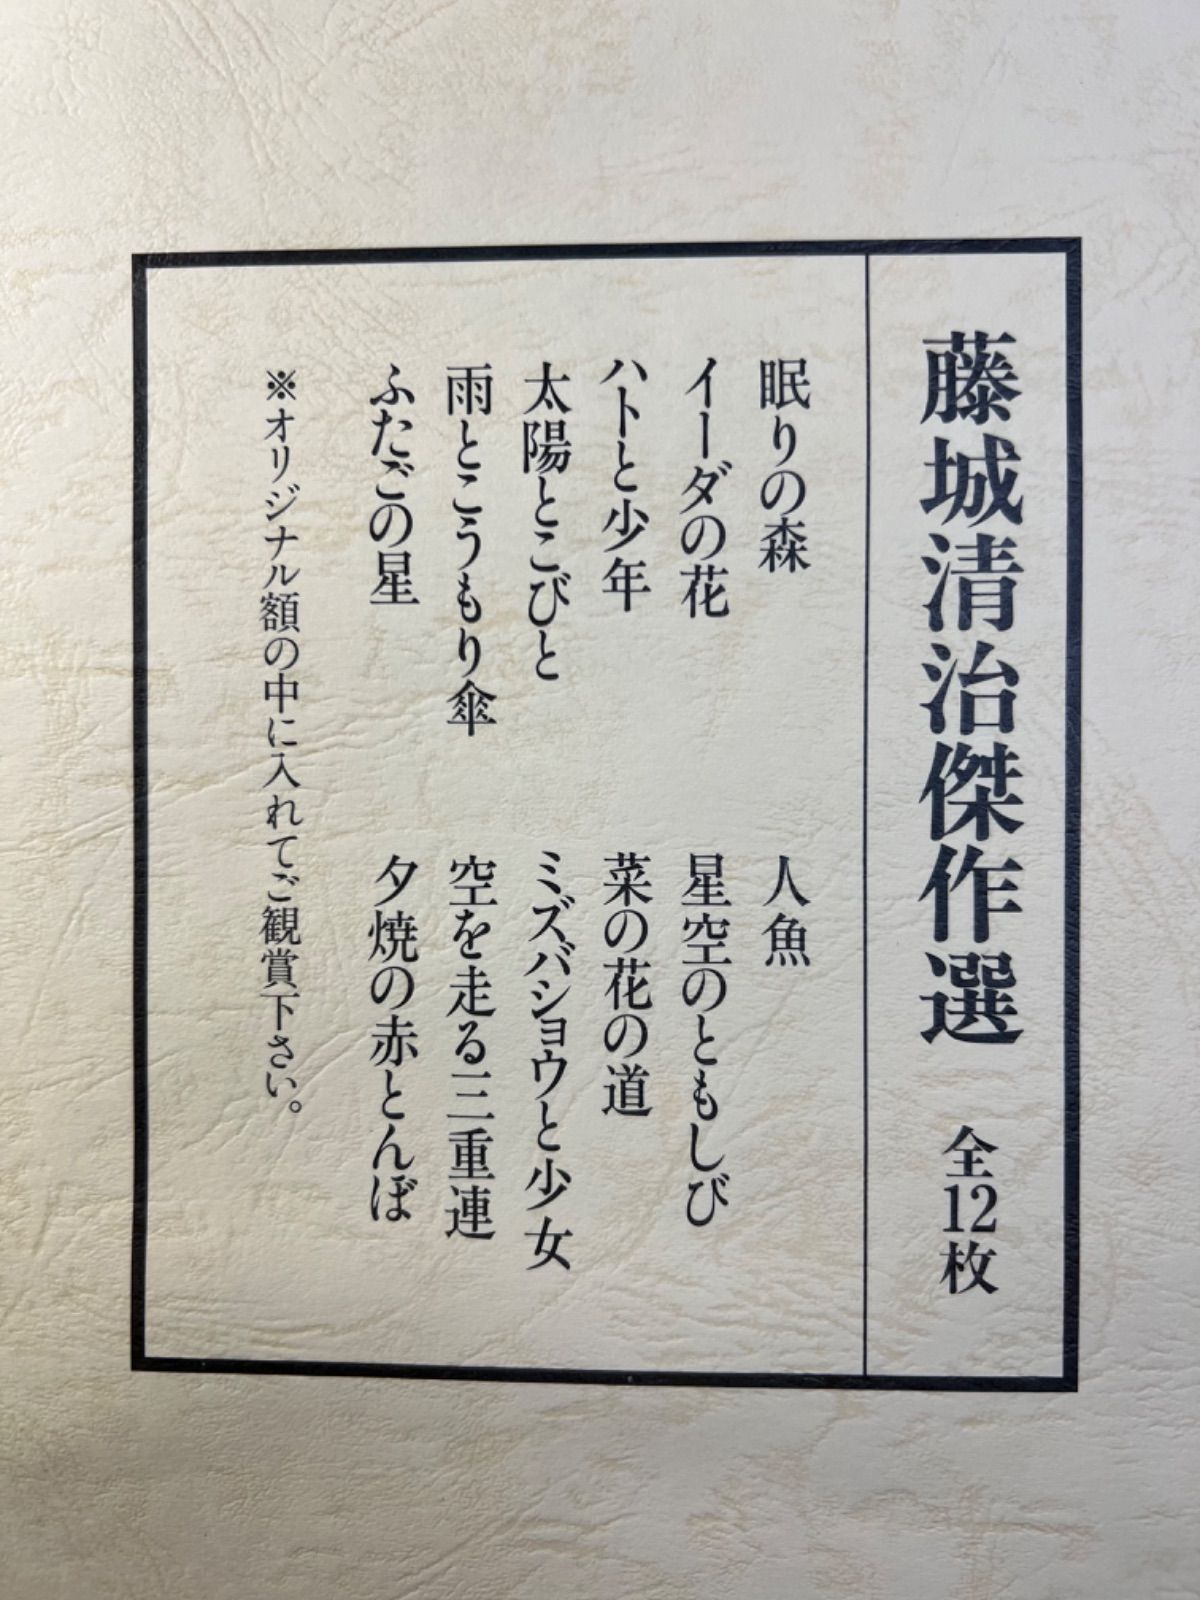 藤城清治傑作選 全12枚
眠りの森
イーダの花
ハトと少年
太陽とこびと
雨とこうもり傘
ふたごの星
人魚
星空のともしび
菜の花の道
ミズバショウと少女
空を走る三重連
夕焼の赤とんぼ
※オリジナル額の中に入れてご観賞下さい。